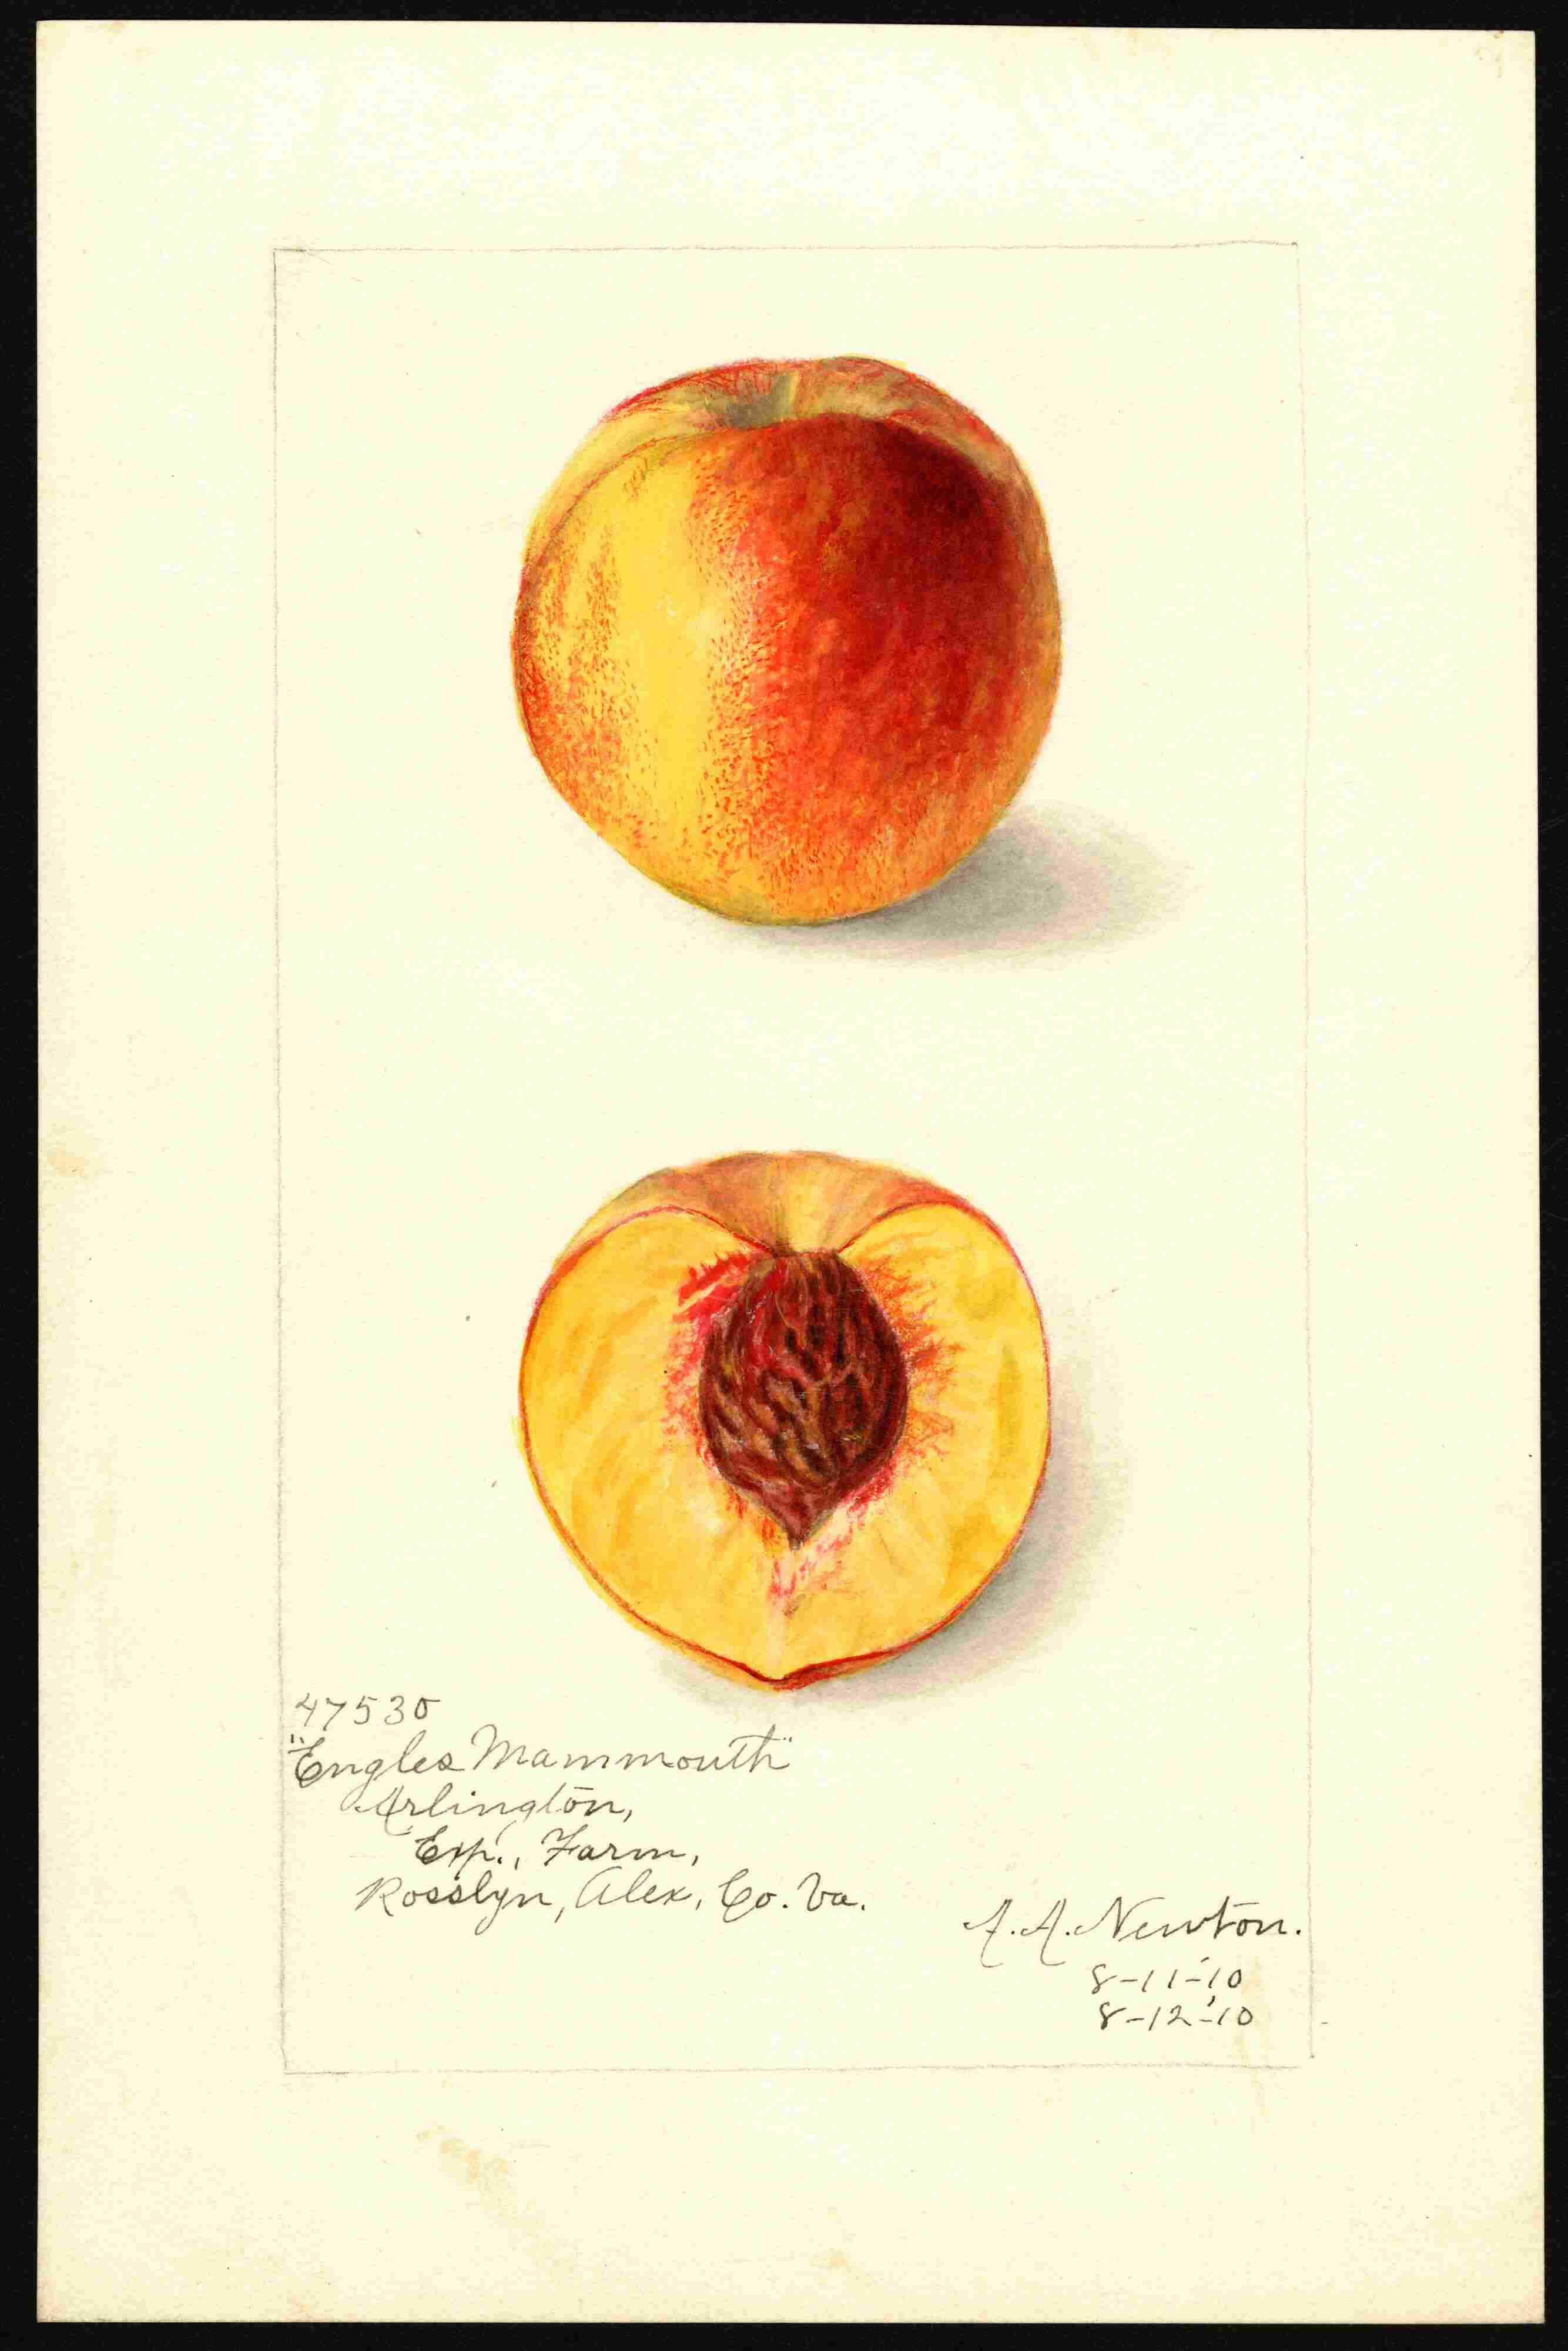 47530
"Engles Mammouth"
Arlington,
Exp., Farm,
Rosslyn, Alex, Co. Va.
A. A. Newton.
8-11-'10
8-12-'10